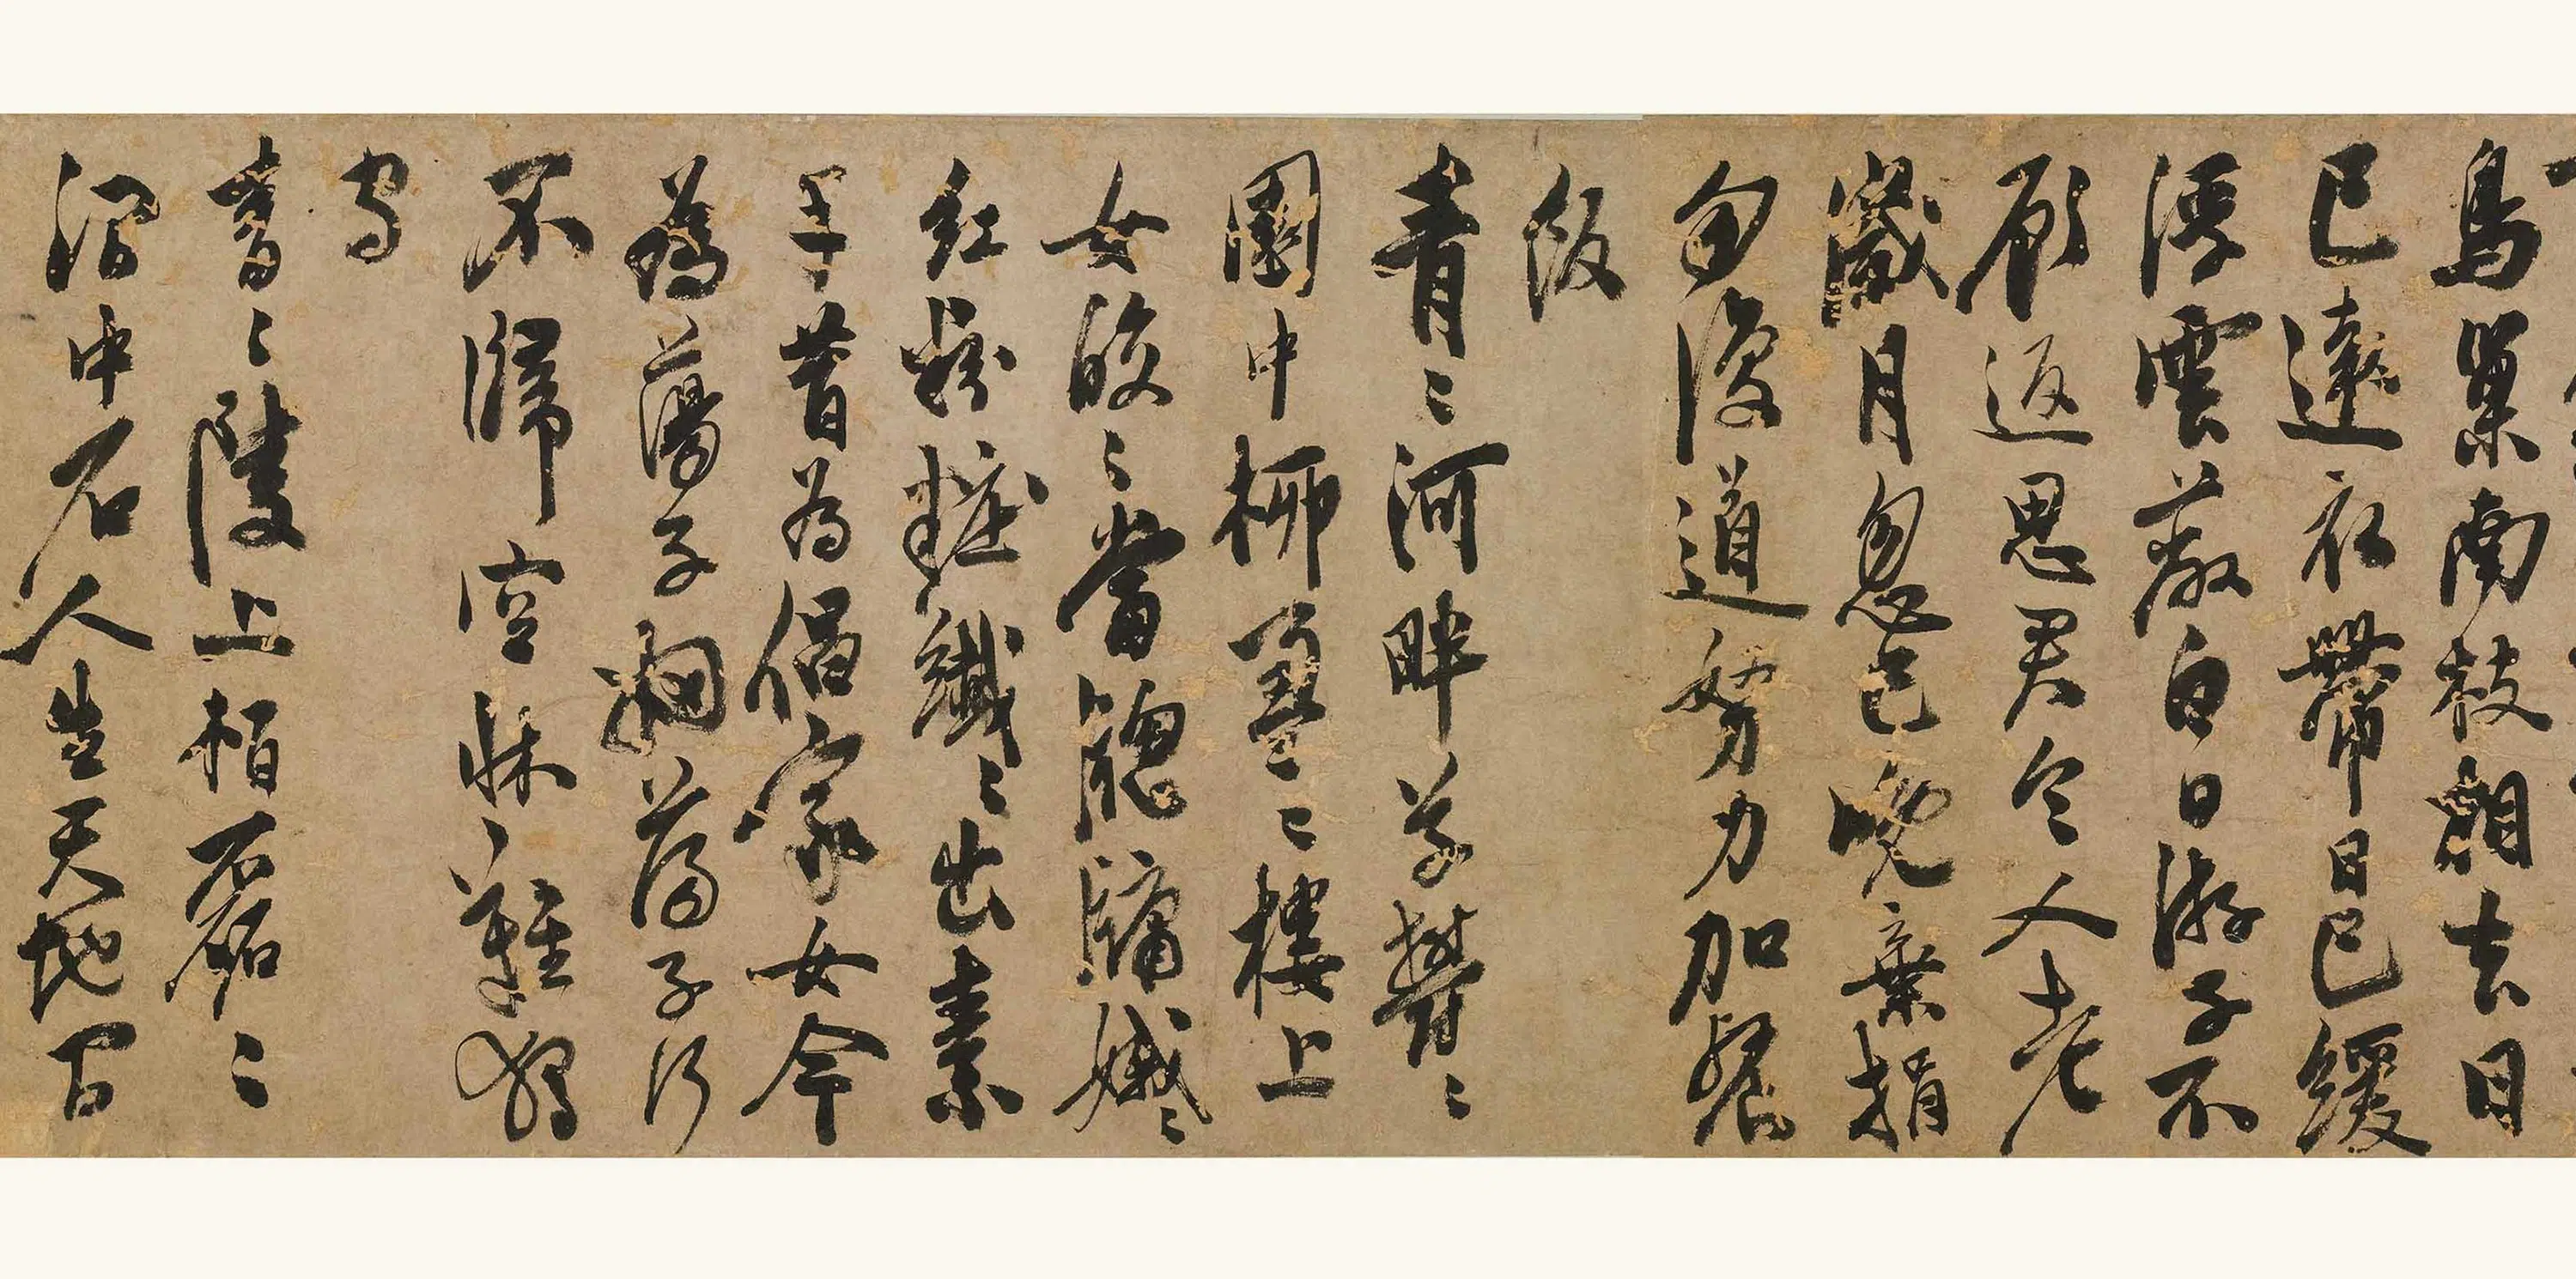 鳥巢南枝相去日
已遠衣帶日已緩
浮雲蔽白日游子不
顧返思君令人老
歲月忽已晚棄捐
勿復道努力加餐
飯
青〻河畔草鬱〻
園中柳盈〻樓上
女皎〻當牕牖娥〻
紅粉粧纖〻出素
手昔為倡家女今
為蕩子婦蕩子行
不歸空牀難獨
守
青〻陵上柏磊〻
澗中石人生天地間